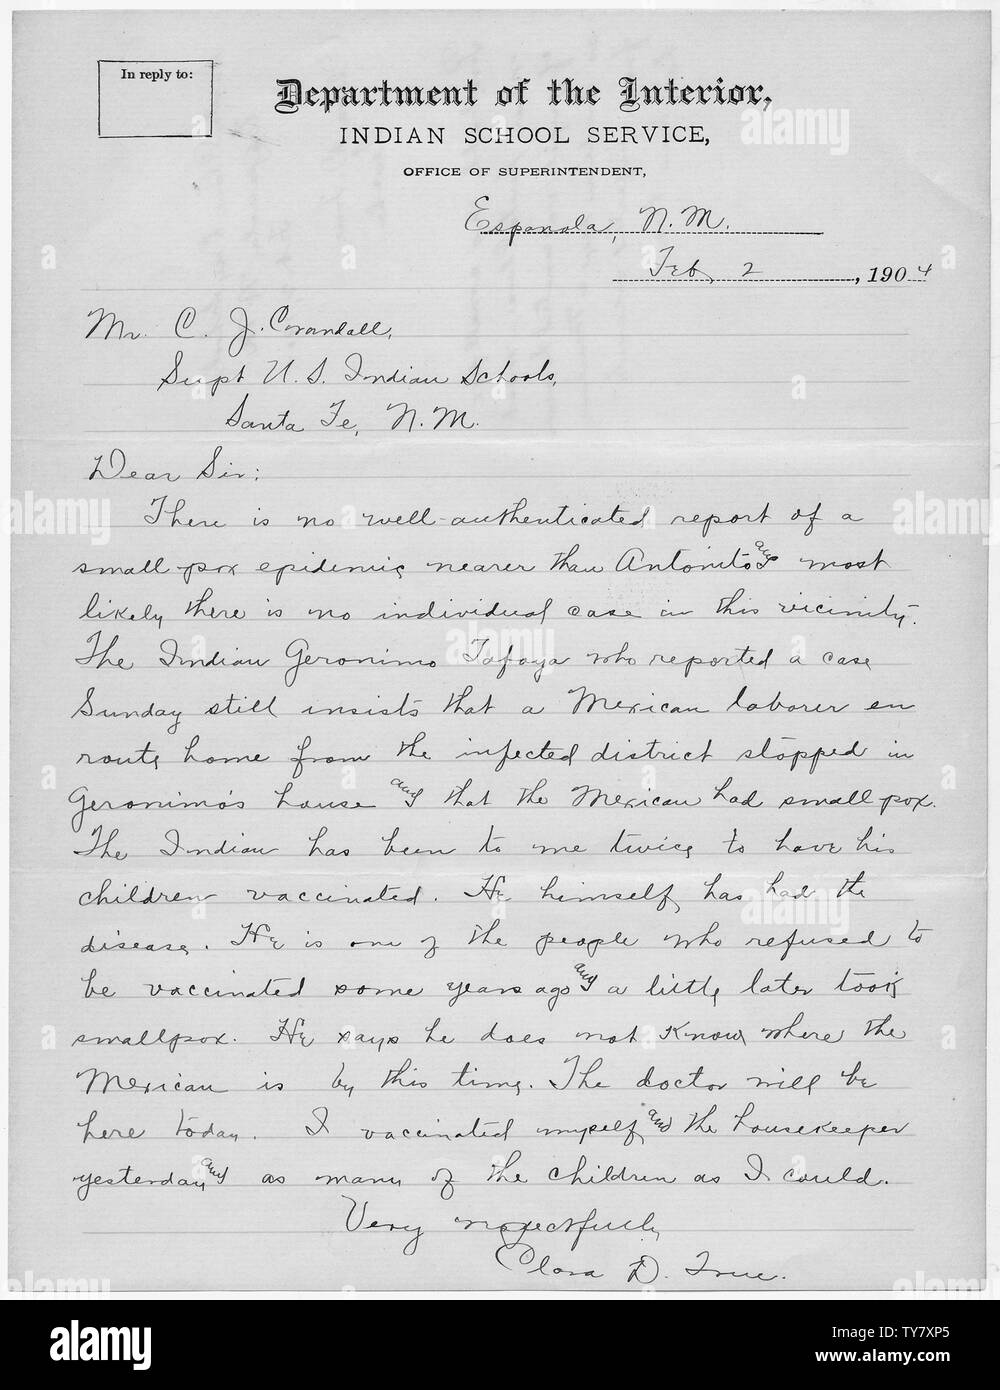 In reply to:
Department of the Interior,
INDIAN SCHOOL SERVICE,
OFFICE OF SUPERINTENDENT,
Espanola, N.M.
Feb 2, 1904
Mr. C. J. Crandall,
Supt U. S. Indian Schools,
Santa Fe, N.M.
Dear Sir:
There is no well-authenticated report of a
small-pox epidemic nearer than Antonito and most
likely there is no individual case in this vicinity.
The Indian Geronimo Tafoya who reported a case
Sunday still insists that a Mexican laborer en
route home from the infected district stopped in
Geronimo's house and that the Mexican had smallpox.
The Indian has been to me twice to have his
children vaccinated. He himself has had the
disease. He is one of the people who refused to
be vaccinated some years ago and a little later took
smallpox. He says he does not know where the
Mexican is by this time. The doctor will be
here today. I vaccinated myself and the housekeeper
yesterday and as many of the children as I could.
Very respectfully
Clara D. True.
alamy
Image ID: TY7XP5
www.alamy.com